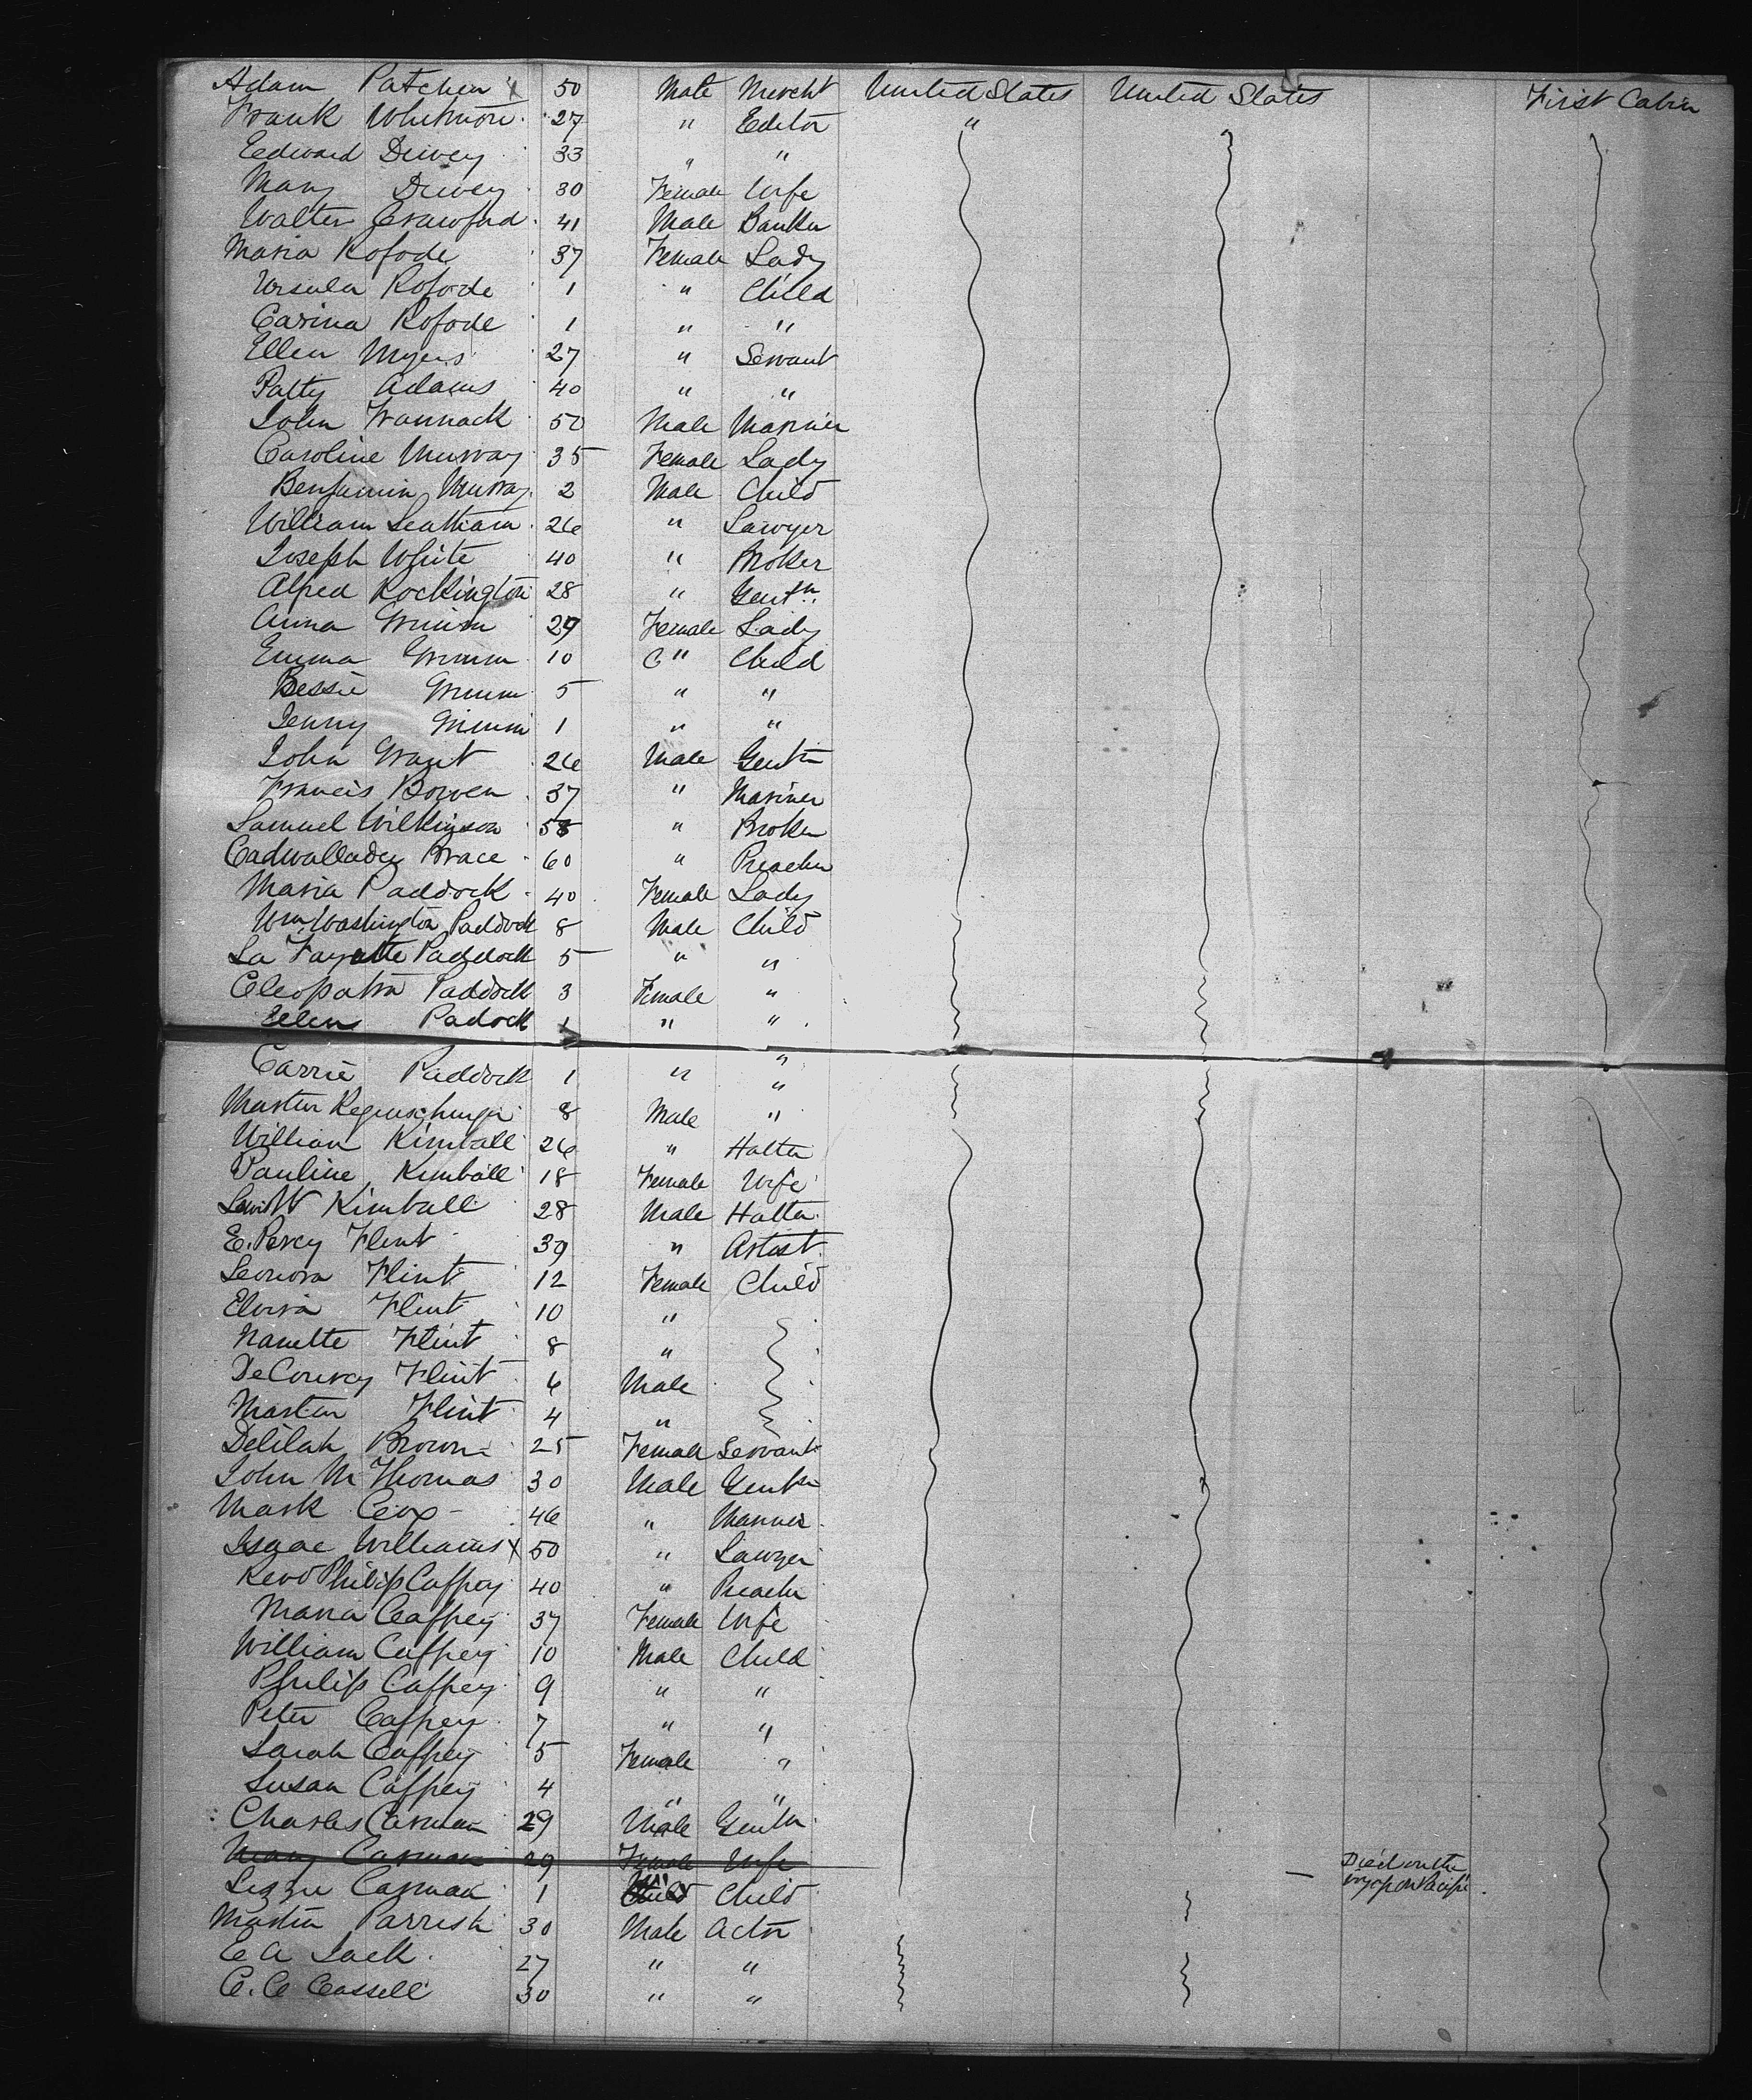 Adam Patchen x 50 Male Mercht United States United States First Cabin
Frank Whitmore 27 " Editor "
Edward Dewey 33 " "
Mary Dewey 30 Female Wife
Walter Crawford 41 Male Banker
Maria Kofode 37 Female Lady
Ursula Kofode 1 " Child
Carina Kofode 1 " "
Ellen Myers 27 " Servant
Patty Adams 40 " "
John Wannack 50 Male Mariner
Caroline Murray 35 Female Lady
Benjamin Murray 2 Male Child
William Leatham 26 " Lawyer
Joseph White 40 " Broker
Alfred Rockington 28 " Gentn
Anna Grimm 29 Female Lady
Emma Grimm 10 " Child
Bessie Grimm 5 " "
Jenny Grimm 1 " "
John Grant 26 Male Gentn
Francis Bowen 37 " Mariner
Samuel Wilkinson 58 " Broker
Cadwallader Brace 60 " Preacher
Maria Paddock 40 Female Lady
Wm Washington Paddock 8 Male Child
La Fayette Paddock 5 " "
Cleopatra Paddock 3 Female "
Ellen Padock 1 " "
Carrie Paddock 1 " "
Martin 8 Male "
William Kimball 26 " Hatter
Pauline Kimball 18 Female Wife
Lewis W Kimball 28 Male Hatter
E. Percy Flint 39 " Artist
Leonora Flint 12 Female Child
Elvira Flint 10 "
Nanette Flint 8 "
DeCourcy Flint 6 Male
Martin Flint 4 "
Delilah Brown 25 Female Servant
John M Thomas 30 Male Gentn
Mark Cox 46 " Mariner
Isaac Williams x 50 " Lawyer
Revd Philip Caffrey 40 " Preacher
Maria Caffrey 37 Female Wife
William Caffrey 10 Male Child
Philip Caffrey 9 " "
Peter Caffrey 7 " "
Sarah Caffrey 5 Female "
Susan Caffrey 4 " "
Charles Carman 29 Male Gentn
Mary Carman 29 Female Wife Died on the
voy. p. on Pacific
Lizzie Carman 1 Child
Martin Parrish 30 Male Actor
E A Lack 27 " "
C. C Cassell 30 " "